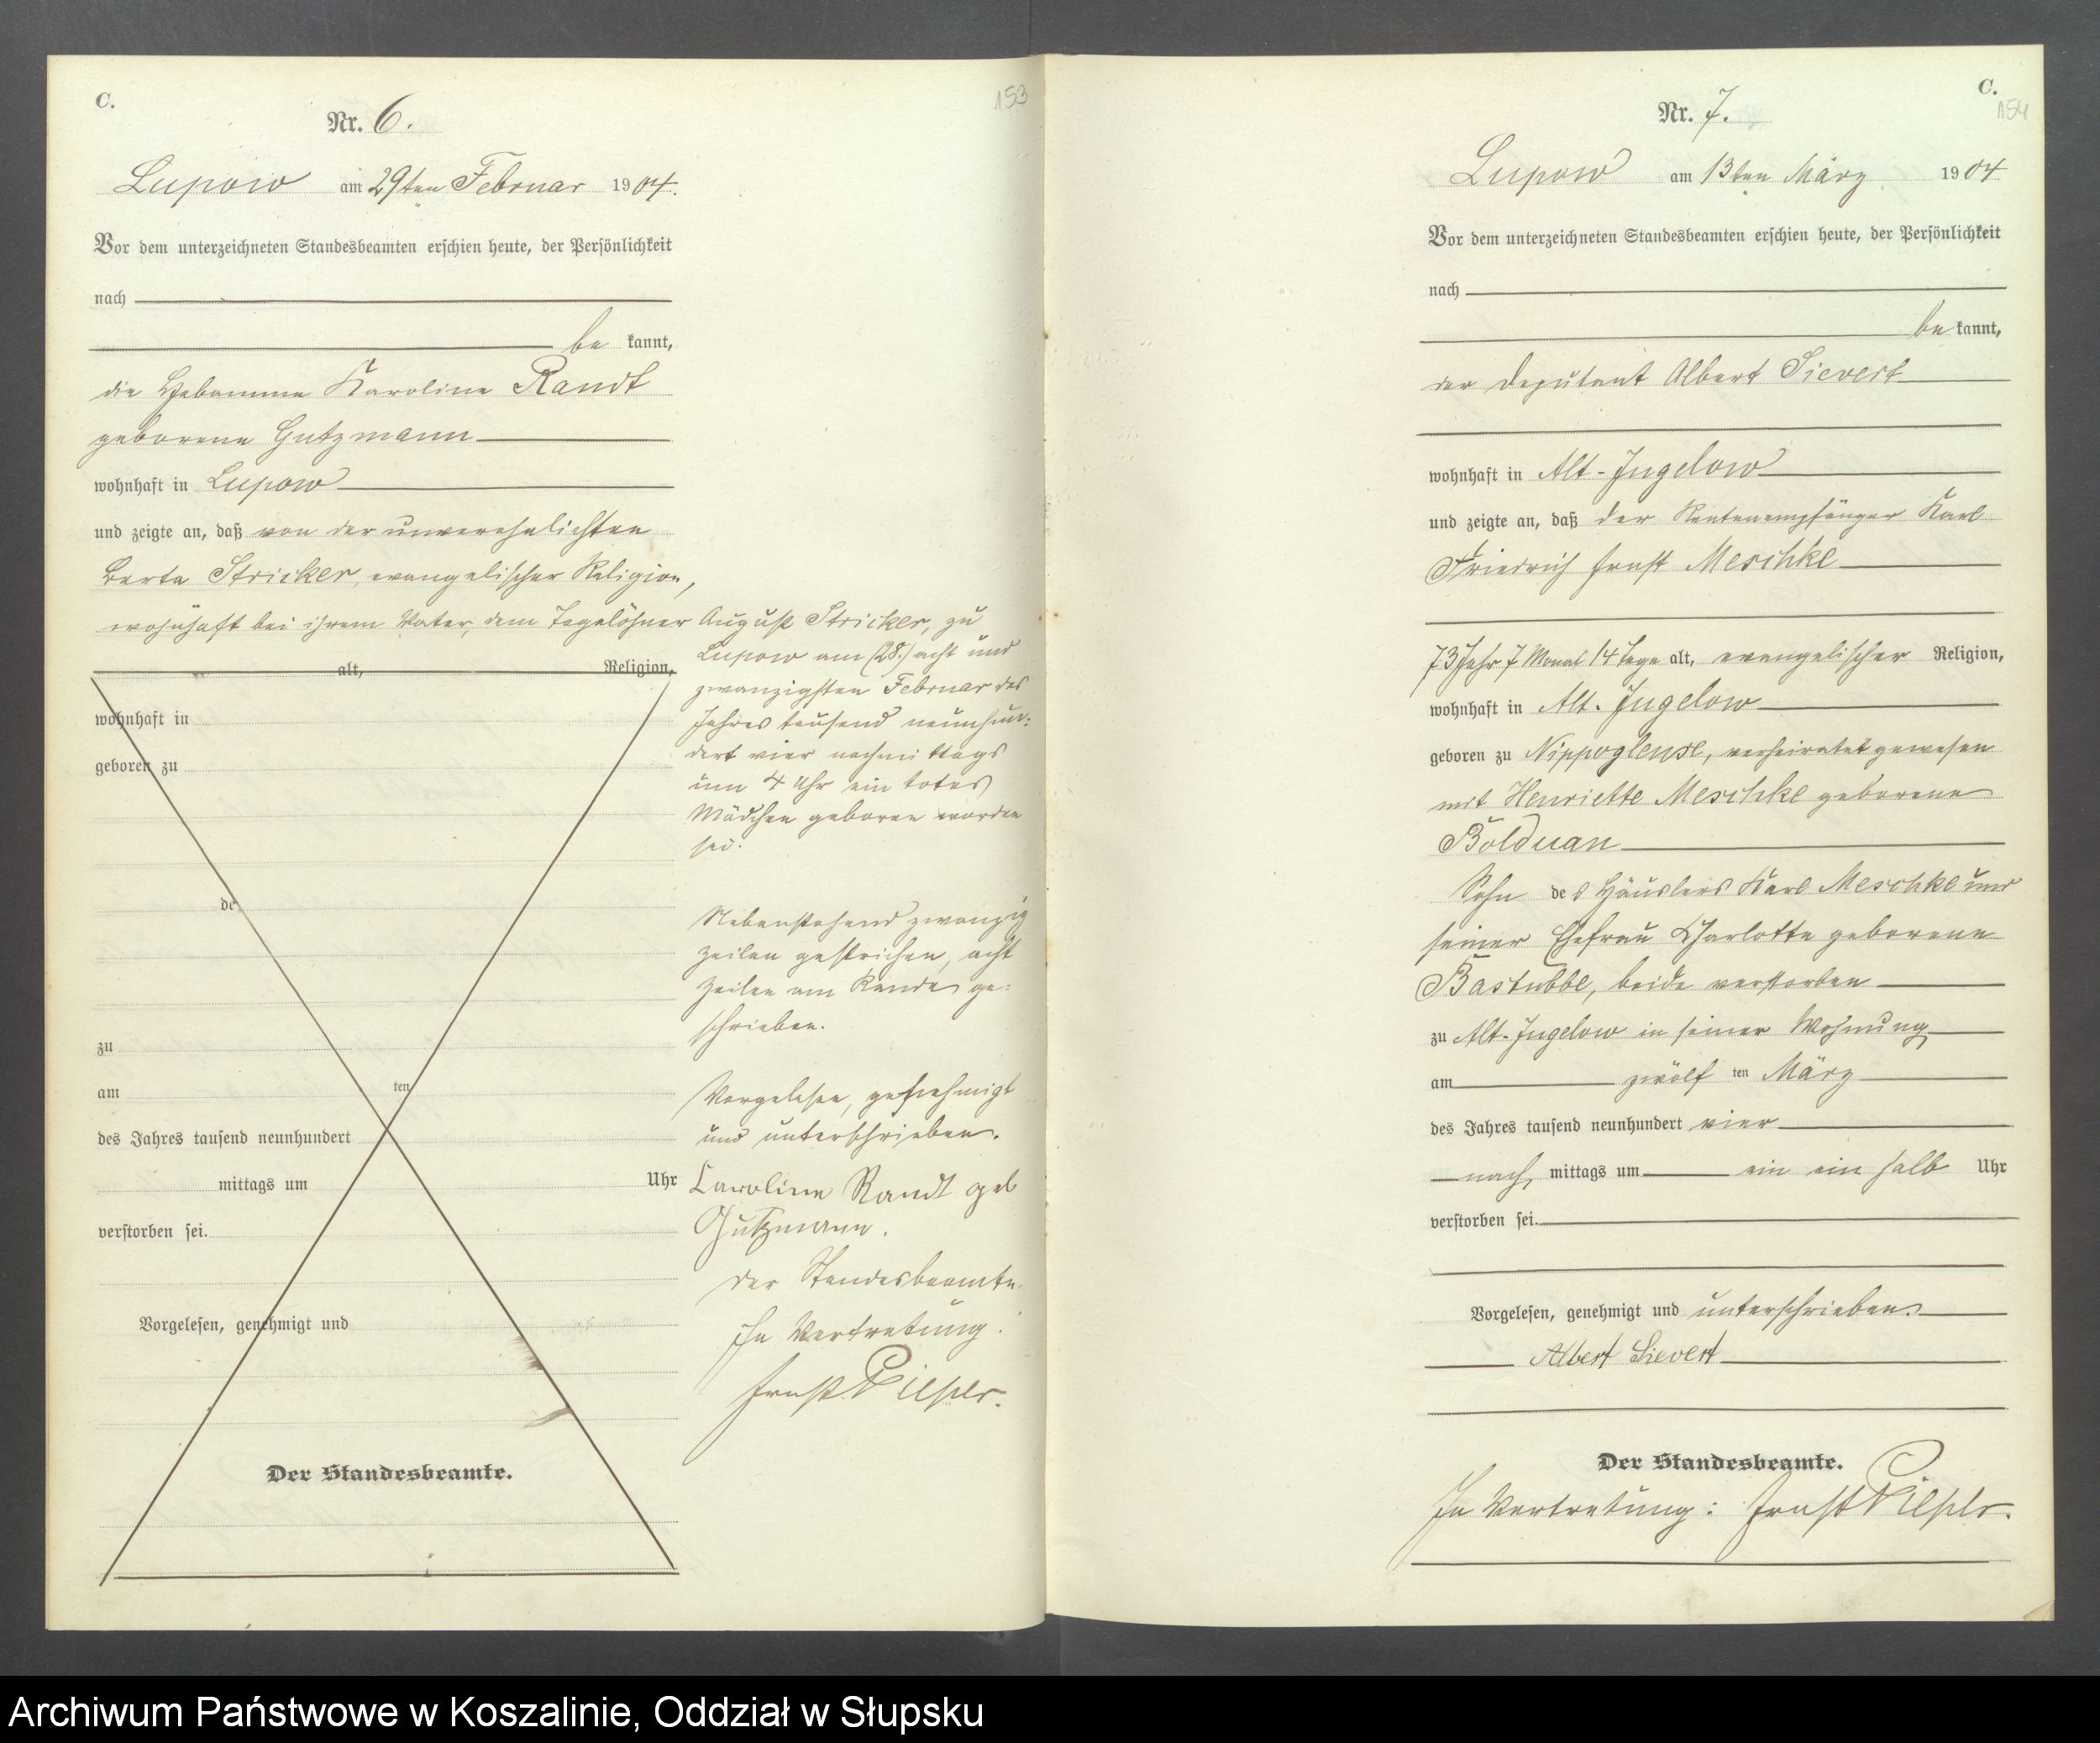 C.
153
Nr. 6.
Lupow am 29ten Februar 1904.
Vor dem unterzeichneten Standesbeamten erschien heute, der Persönlichkeit
nach
be kannt,
die Hebamme Karoline Randt
geborene Gutzmann
wohnhaft in Lupow
und zeigte an, daß von der unverehelichten
Berta Stricker, evangelischer Religion,
wohnhaft bei ihrem Vater, dem Tagelöhner August Stricker, zu
Lupow am (28.) acht und
zwanzigsten Februar des
Jahres tausend neunhun-
dert vier nachmittags
um 4 Uhr ein totes
Mädchen geboren worden
sei.
alt, Religion,
wohnhaft in
geboren zu
de
zu
am ten
des Jahres tausend neunhundert
mittags um Uhr
verstorben sei.
Vorgelesen, genehmigt und
Der Standesbeamte.
Nebenstehend zwanzig
Zeilen gestrichen, acht
Zeilen am Rande ge-
schrieben.
Vorgelesen, genehmigt
und unterschrieben.
Caroline Randt geb
Gutzmann.
Der Standesbeamte.
In Vertretung.
Ernst Piepls.
C.
154
Nr. 7.
Lupow am 13ten März 1904
Vor dem unterzeichneten Standesbeamten erschien heute, der Persönlichkeit
nach
be kannt,
der Deputant Albert Sievert
wohnhaft in Alt-Jugelow
und zeigte an, daß der Rentenempfänger Karl
Friedrich Ernst Meschke
73 Jahr 7 Monat 14 Tage alt, evangelischer Religion,
wohnhaft in Alt-Jugelow
geboren zu Nippoglense, verheiratet gewesen
mit Henriette Meschke geborene
Bolduan
Sohn des Häuslers Karl Meschke und
seiner Ehefrau Charlotte geborene
Bastubbe, beide verstorben
zu Alt-Jugelow in seiner Wohnung
am zwölf ten März
des Jahres tausend neunhundert vier
nach mittags um ein ein halb Uhr
verstorben sei.
Vorgelesen, genehmigt und unterschrieben.
Albert Sievert
Der Standesbeamte.
In Vertretung: Ernst Piepls.
Archiwum Państwowe w Koszalinie, Oddział w Słupsku